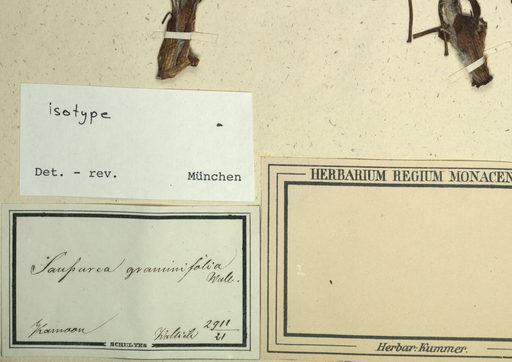 isotype
Det. - rev. München
HERBARIUM REGIUM MONACEN
Saußurea graminifolia
Wall.
Kamaon Wallich 2911/21
SCHULTES
Herbar. Kummer.